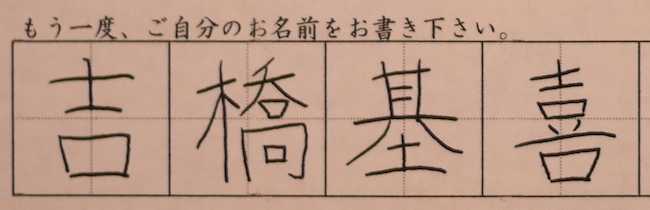 もう一度、ご自分のお名前をお書き下さい。
吉橋基喜